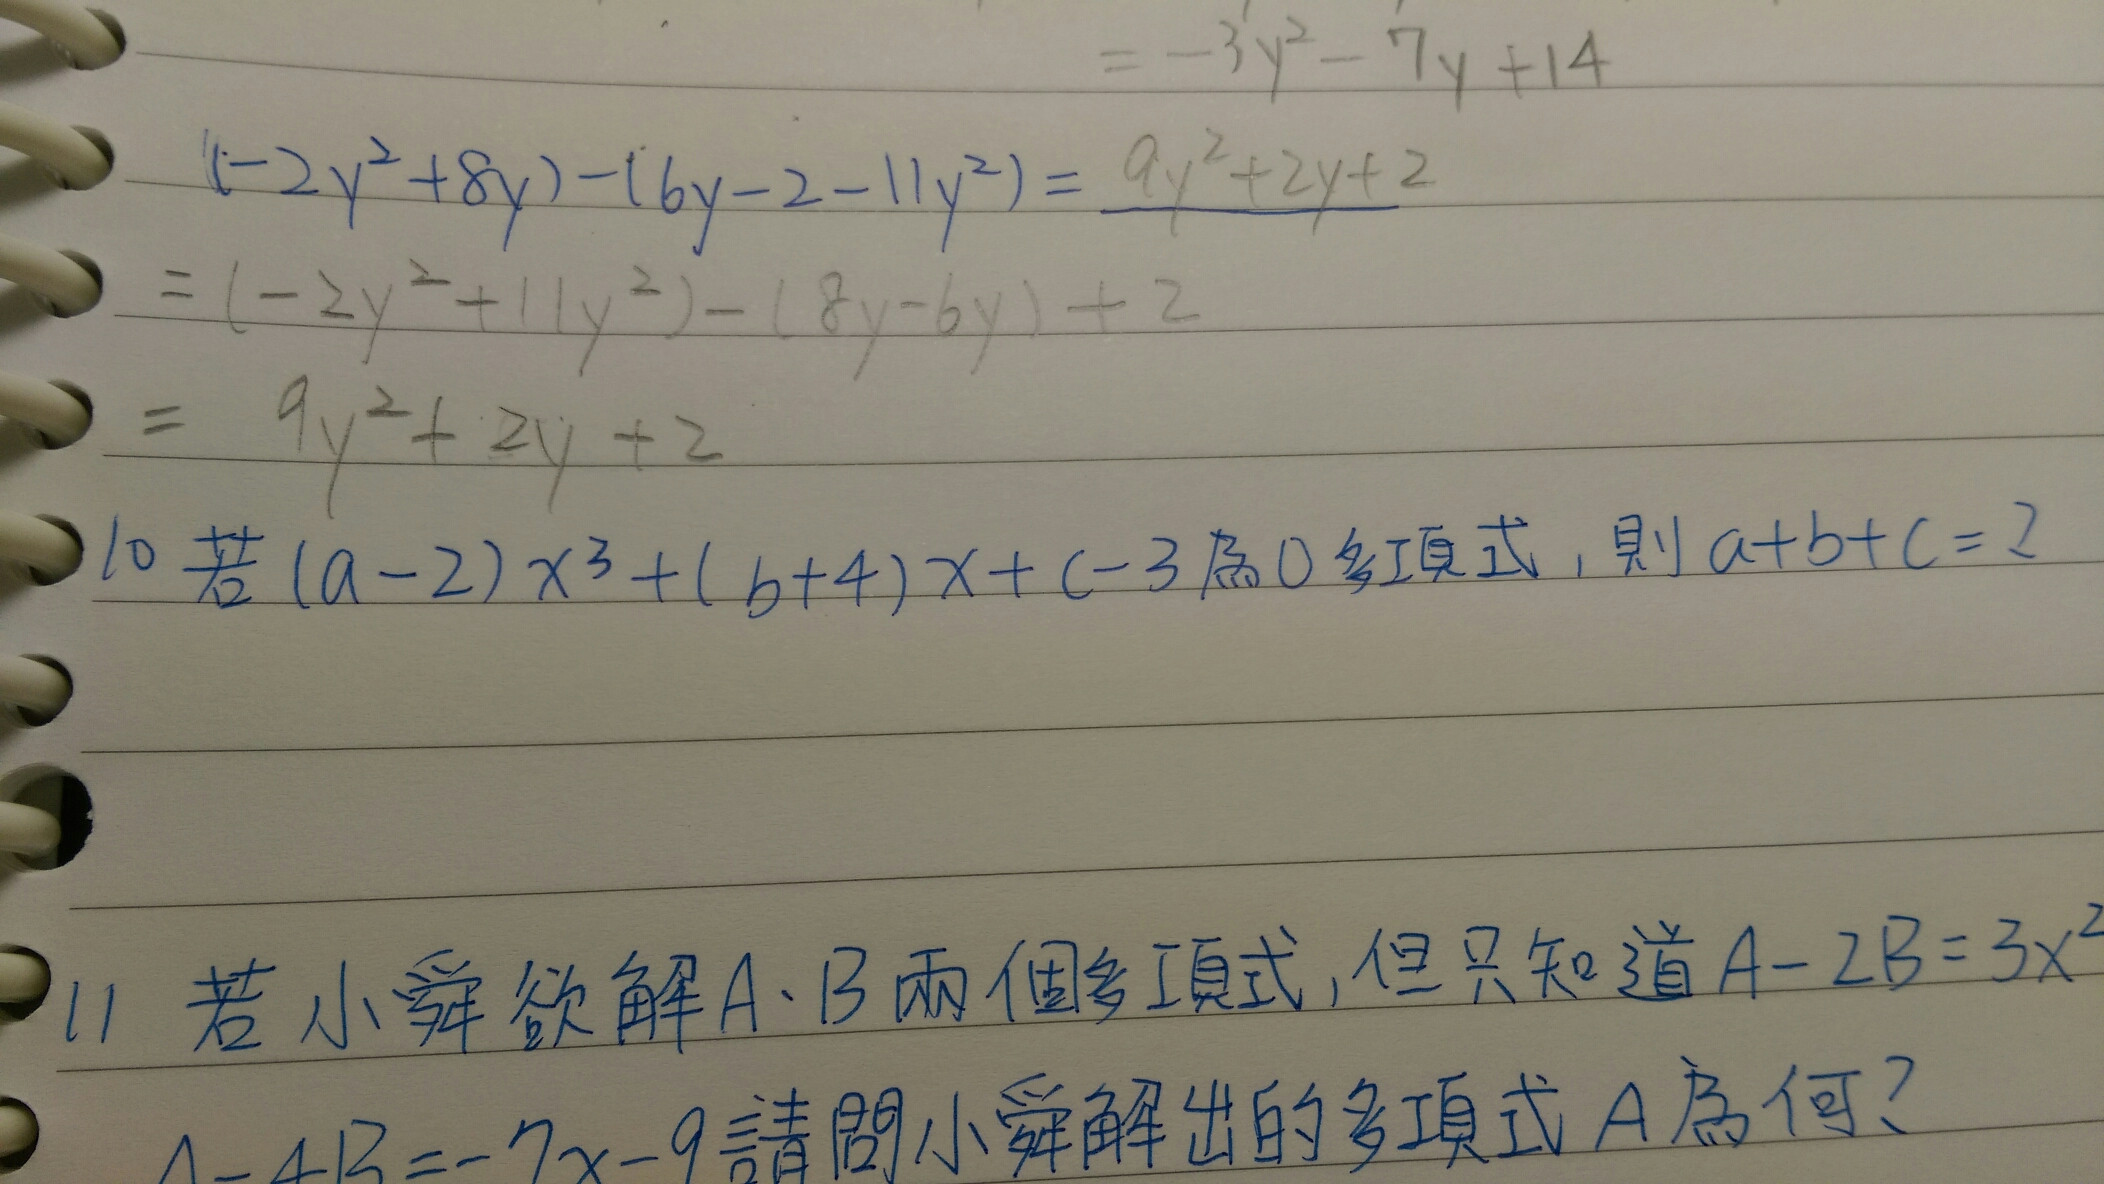 = -3y² - 7y + 14
(-2y²+8y)-(6y-2-11y²) = 9y²+2y+2
= (-2y²+11y²)-(8y-6y)+2
= 9y²+2y+2
10 若(a-2)x³+(b+4)x+c-3為0多項式,則a+b+c=?
11 若小舜欲解A、B兩個多項式,但只知道A-2B=3x²
A-4B=-7x-9請問小舜解出的多項式A為何?